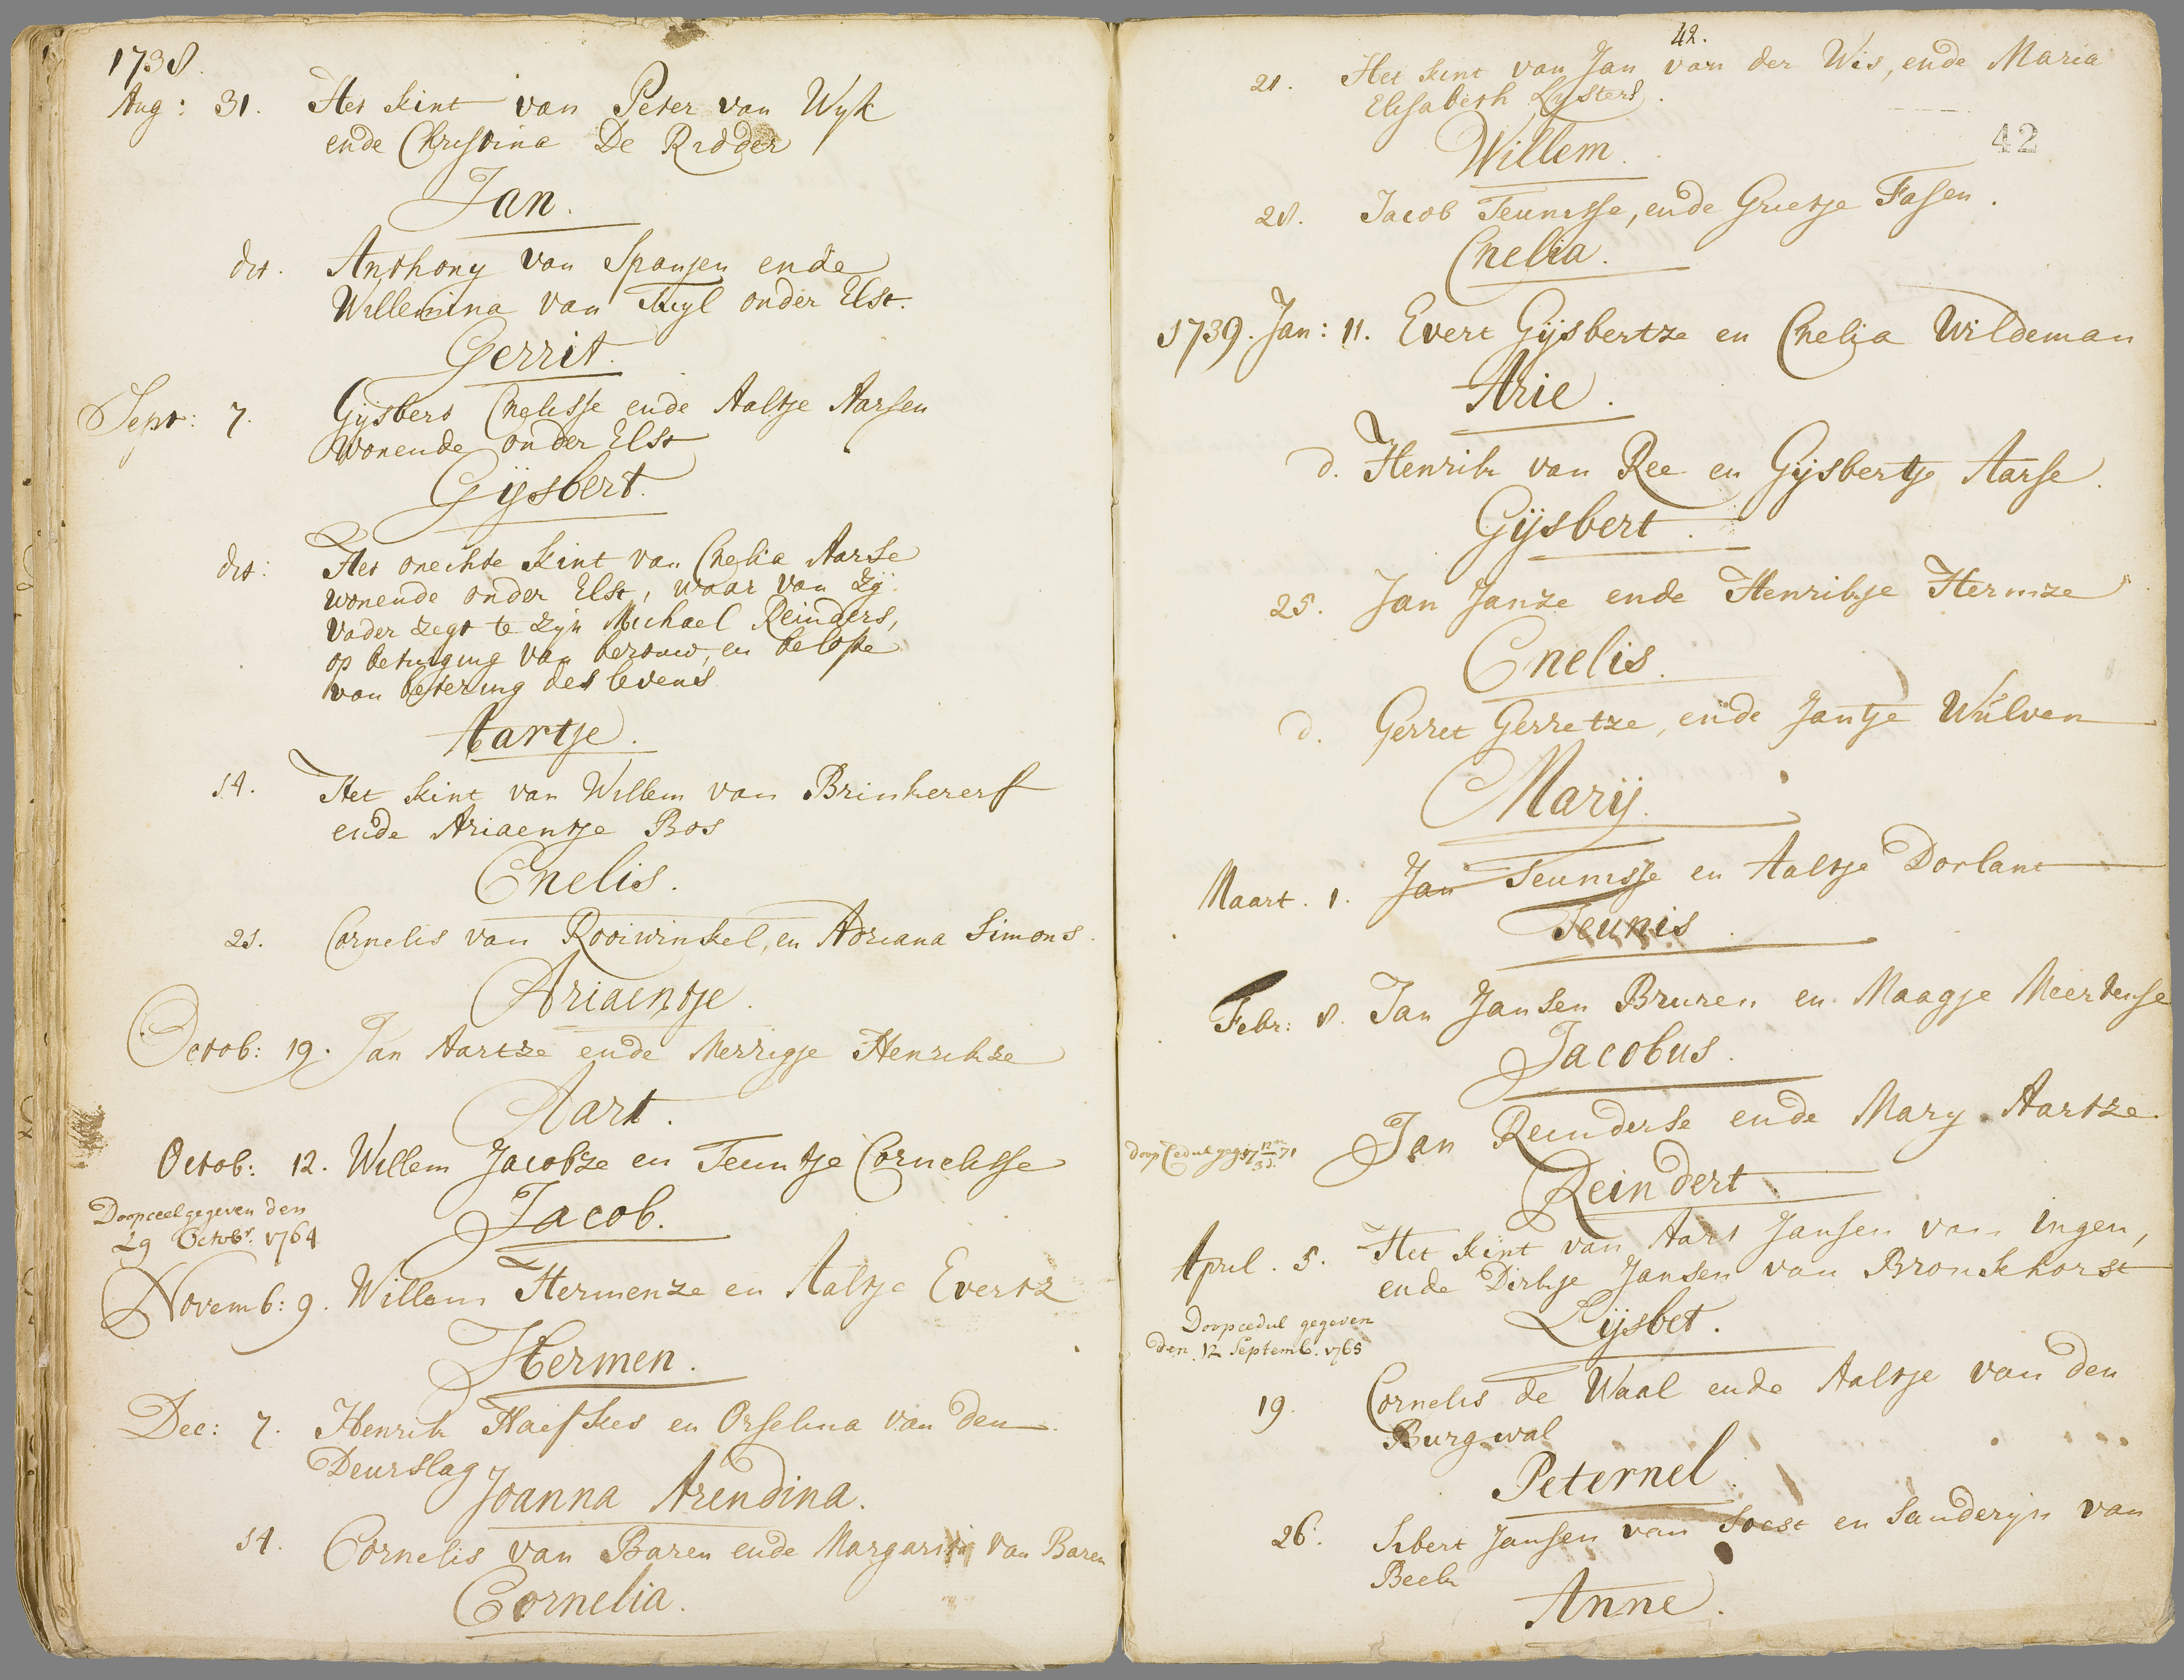 1738.
Aug: 31. Het kint van Peter van Wyk
ende Christina De Ridder
Jan.
dit. Anthony van Spanjen ende
Willemina van Tuyl onder Elst.
Gerrit.
Sept: 7. Gijsbert Cnelisse ende Aaltje Aarsen
wonende onder Elst
Gijsbert.
dit: Het onechte kint van Cnelia Aarse
wonende onder Elst, waar van zij
vader zegt te zijn Michael Reinders,
op betuiging van berouw, en belofte
van betering des levens
Aartje.
14. Het kint van Willem van Brinkererf
ende Ariaentje Bos
Cnelis.
21. Cornelis van Rooiwinkel, en Adriana Simons.
Ariaentje.
Octob: 19. Jan Aartze ende Merrigje Henrikze
Aart.
Octob: 12. Willem Jacobze en Teuntje Cornelisse
Jacob.
Doopceel gegeven den
29 Octobr. 1764
Novemb: 9. Willem Hermenze en Aaltje Evertz
Hermen.
Dec: 7. Henrik Haefkes en Orselina van den
Deurslag
Joanna Arendina.
14. Cornelis van Baren ende Margarita van Baren
Cornelia.
42.
21. Het kint van Jan van der Wis, ende Maria
Elisabeth Lysters.
42
Willem.
28. Jacob Teunisse, ende Grietje Fasen.
Cnelia.
1739. Jan: 11. Evert Gijsbertze en Cnelia Wildeman
Arie.
d. Henrik van Ree en Gijsbertje Aarse.
Gijsbert.
25. Jan Janze ende Henrikje Hermze
Cnelis.
d. Gerret Gerretze, ende Jantje Wulven
Marij.
Maart. 1. Jan Teunisse en Aaltje Dorlant
Teunis.
Febr: 8. Jan Jansen Bruren en Maagje Meertense
Jacobus.
Jan Reinderse ende Mary Aartze.
Doop Cedul geg:
Reindert
April. 5. Het kint van Aart Jansen van Ingen,
ende Dirkje Jansen van Bronckhorst
Lijsbet.
Doopcedul gegeven
den 12 Septemb. 1765
19. Cornelis de Waal ende Aaltje van den
Burgwal
Peternel.
26. Sibert Jansen van Soest en Sanderijn van
Beek
Anne.